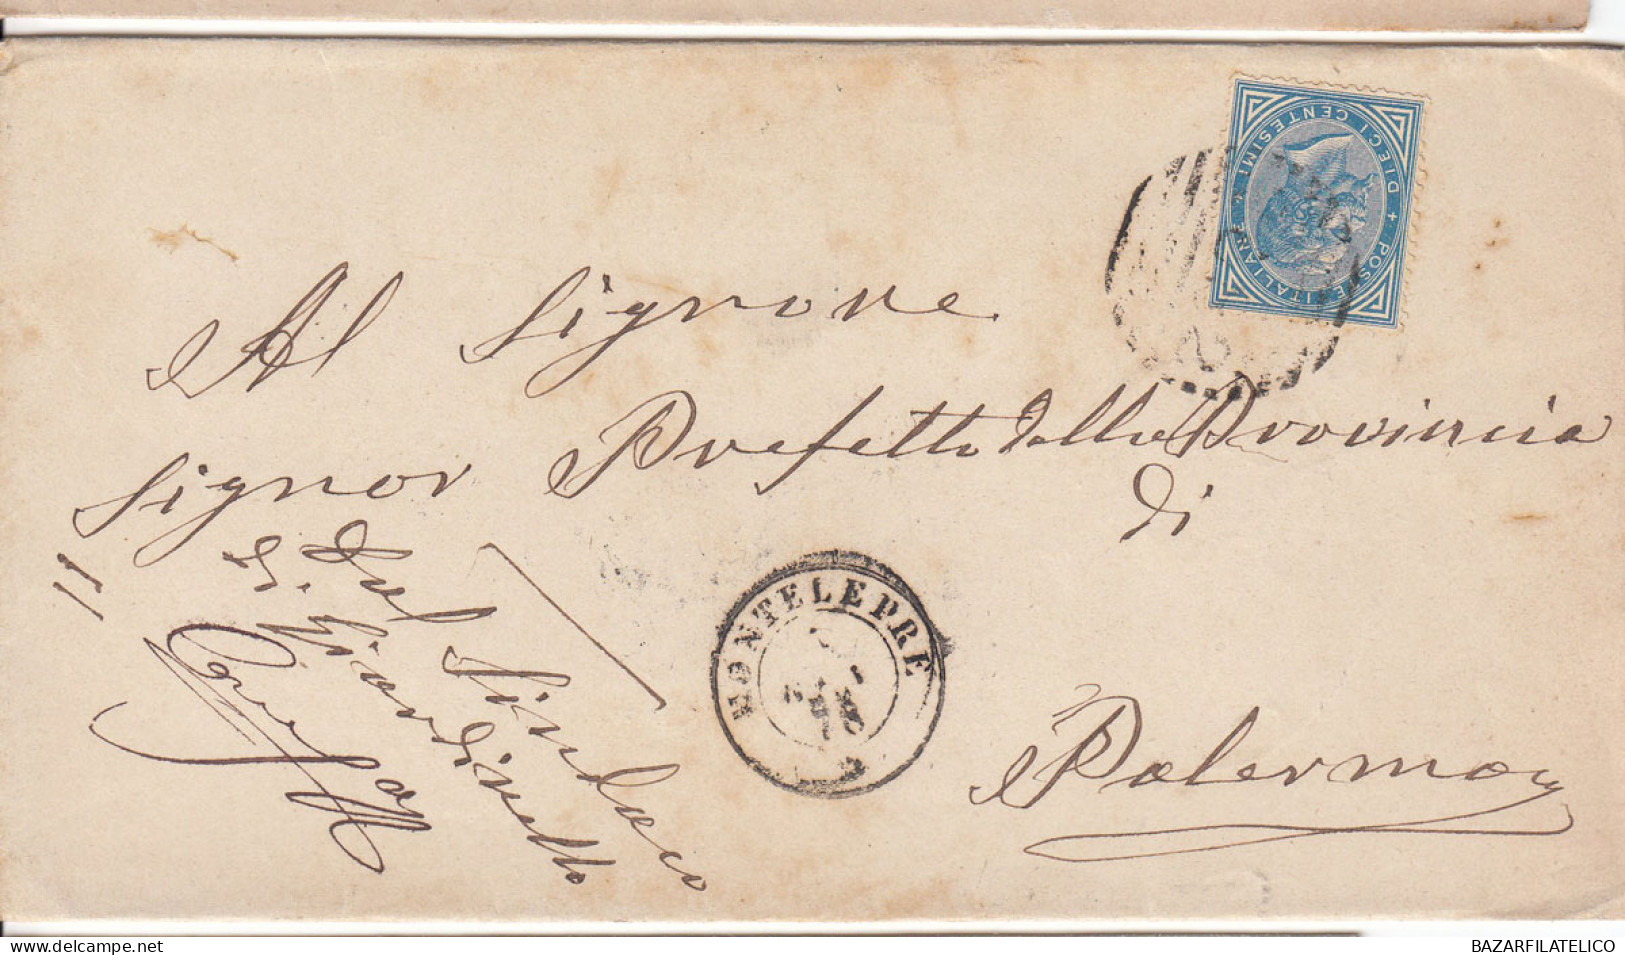 + POSTE ITALIANE * DIECI CENTESIMI
Al Signore
Signor Prefetto della Provincia
di
Palermo
Dal Sindaco
di Giardinello
MONTELEPRE
delcampe.net
BAZARFILATELICO